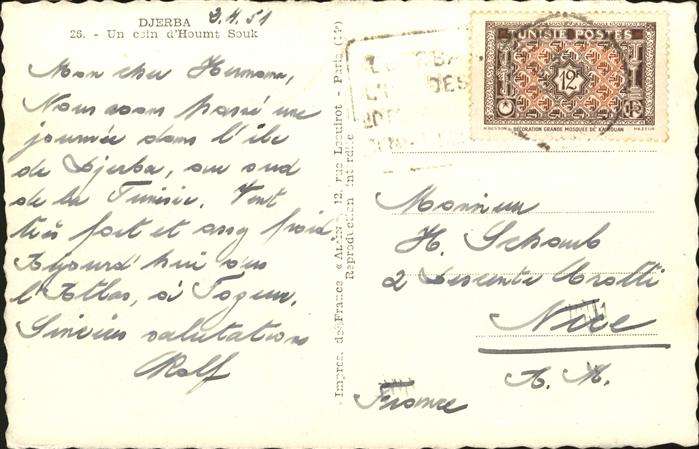 DJERBA
2.4.51
26. - Un coin d'Houmt Souk
Mon cher Hermann,
Nous avons passé une
journée dans l'île
de Djerba, au sud
de la Tunisie. Vent
très fort et assez froid
Aujourd'hui
l'Atlas, à Tozeur.
Sincères salutations
Rolf
Impres. de France « ALÉN » 12, rue Lequirot - Paris (14e)
Reproduction interdite
TUNISIE POSTES
12F
DÉCORATION GRANDE MOSQUÉE DE KAIROUAN
Monsieur
H. Schaub
2 Descente Crotti
Nice
A. M.
France